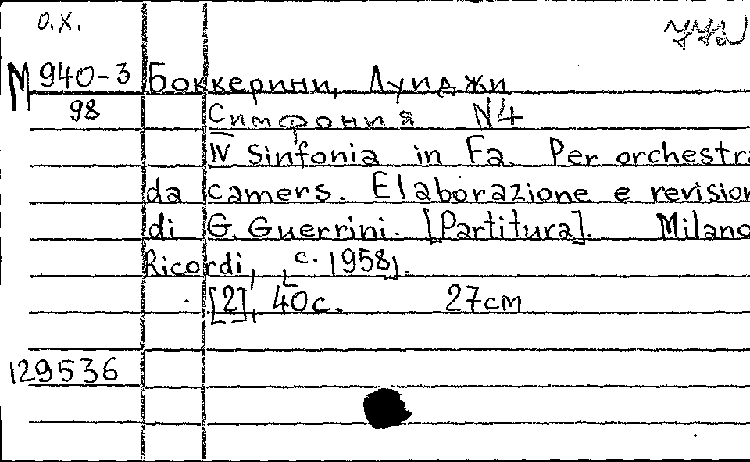 О.Х.
М 940-3 Боккерини, Луиджи
98 Симфония N4
IV Sinfonia in Fa. Per orchestra
da camers. Elaborazione e revision
di G. Guerrini. [Partitura]. Milano
Ricordi, [c. 1958].
[2], 40с. 27см
129536